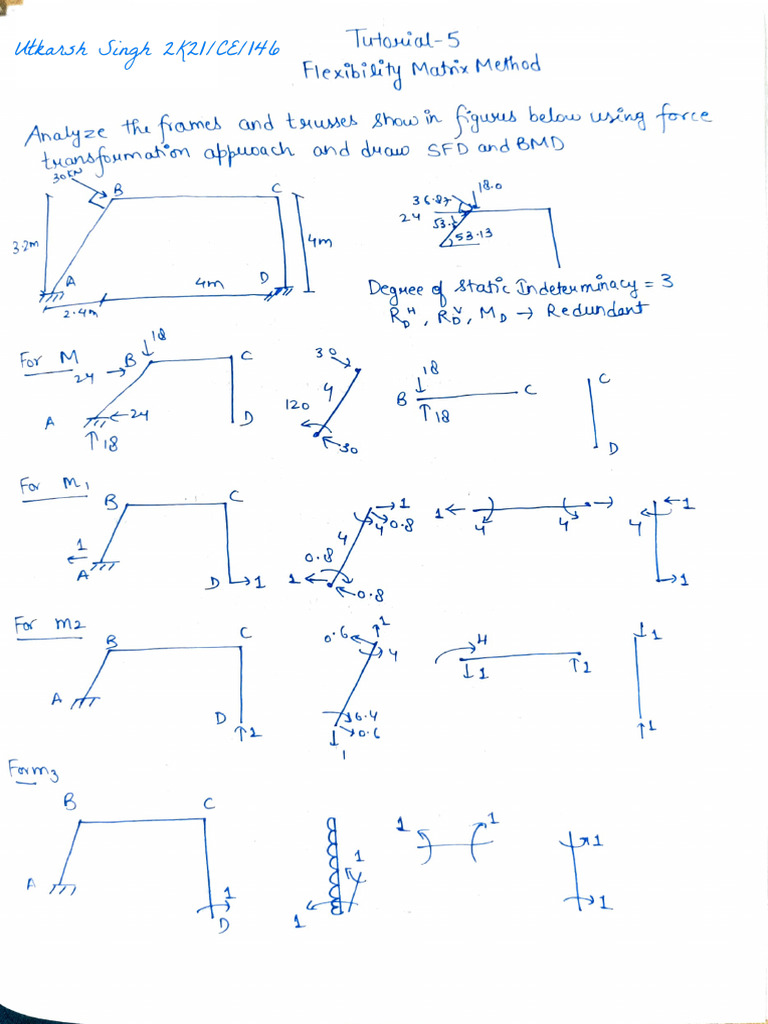 Utkarsh Singh 2K21/CE/146
Tutorial-5
Flexibility Matrix Method
Analyze the frames and trusses show in figures below using force
transformation approach and draw SFD and BMD
30KN
B
C
3.2m
4m
A
4m
D
2.4m
36.87
18.0
24
53.13
Degree of Static Indeterminacy = 3
R_D^H, R_D^V, M_D → Redundant
For M
18
24
B
C
A
24
18
D
30
4
120
30
18
B
C
18
C
D
For m1
B
C
1
A
D
1
1
4
0.8
4
0.8
1
0.8
1
4
4
1
4
1
For m2
B
C
A
D
1
0.6
1
4
6.4
0.6
1
4
1
1
1
1
For m3
B
C
A
1
D
1
1
1
1
1
1